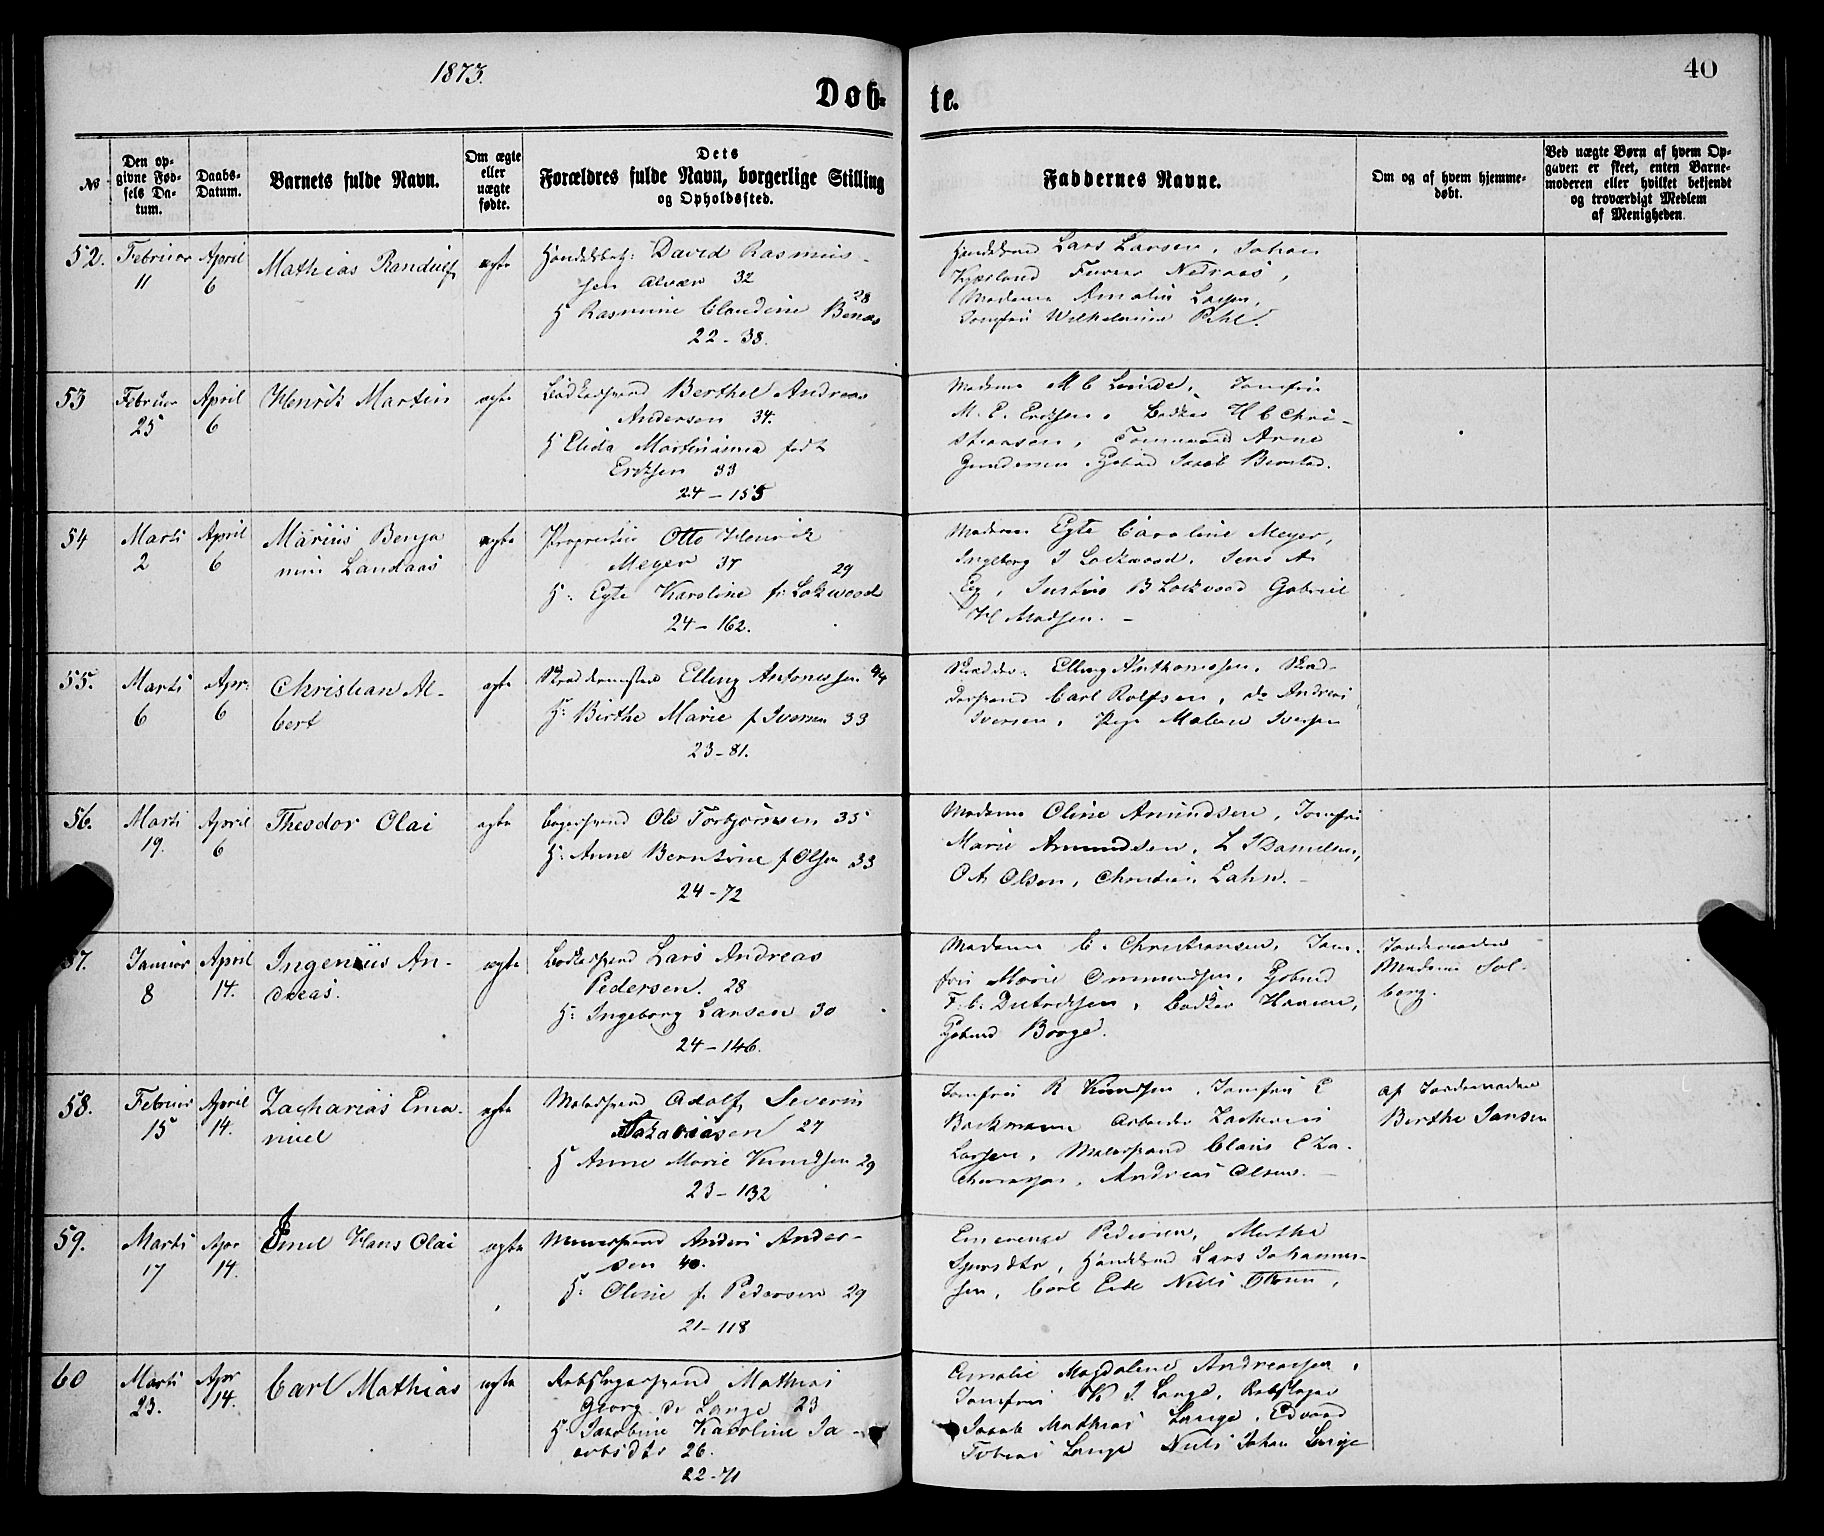 1873.
40
Døb-
te.
No
Den op-
givne Fød-
sels Da-
tum.
Daabs-
Datum.
Barnets fulde Navn.
Om ægte
eller
uægte
fødte.
Dets
Forældres fulde Navn, borgerlige Stilling
og Opholdssted.
Faddernes Navne.
Om og af hvem hjemme-
døbt.
Ved uægte Børn af hvem Op-
gaven er skeet, enten Barne-
moderen eller hvilket bekjendt
og troværdigt Medlem
af Menigheden.
52.
Februar
11
April
6
Mathias Randulf
ægte
David Rasmus-
sen 32
H Rasmine Claudine 28
22-38.
Lars Larsen, Johan
Madame Amalie
Jomfru Wilhelmine Pihl.
53
Februar
25
April
6
Henrik Martin
ægte
Bødkersvend Berthel Andreas
Andersen 34.
H Elida Martinianna født
Eriksen 33
24-155
Madame M C Jomfru
M. E. Eriksen, Bødker H C Chri-
stiansen, Arne
Gundersen Jacob
54
Marts
2
April
6
Marius Benja
min Landaas
ægte
Otto Henrik
Meyer 37
29
H: Egte Karoline f: Lokwood
24-162.
Madame Egte Caroline Meyer,
Ingeborg J Lockwood, Jens A
Eeg, Justus B Lockwood Gabriel
H Madsen.
55.
Marts
6
Apr:
6
Christian Al-
bert
ægte
Elling Antonissen 44
H: Birthe Marie f Iversen 33
23-81.
Skrædder Elling Anthonissen, Skræd-
dersvend Carl Rolfsen, do Andreas
Iversen, Pige Malene Iversen
56.
Marts
19.
April
6
Theodor Olai
ægte
Bagersvend Ole Torbjørnsen 35
H: Anne Berntine f Olsen 33
24-72
Madame Oline Amundsen, Jomfru
Marie Amundsen, L J Danielsen,
O A Olsen, Christian Lahn.
57.
Januar
8
April
14.
Ingenius An-
dreas.
ægte
Bødkersvend Lars Andreas
Pedersen. 28
H: Ingeborg Larsen 30
24-146.
Madame C. Christiansen, Jom-
fru Marie Ommundsen,
F. C. Didriksen, Bødker Hansen,
Jordemoder
Madame Sol-
berg.
58.
Februar
15
April
14.
Zacharias Ema-
nuel
ægte
Malersvend Adolf Severin
Sakariasen 27
H Anne Marie Knudsen 29
23-132
Jomfru R Knudsen, Jomfru E
Backmann Arbeider Zacharias
Larsen, Malersvend Claus C Za-
chariassen, Andreas Olsen.
af Jordemoder
Berthe Jansen
59.
Marts
17
Apr
14.
Emil Hans Olai
ægte
Murersvend Anders Ander-
sen 40.
H: Oline f. Pedersen 29
21-118
Emerense Pedersen, Martha
Lars Johannes-
sen, Carl Eide Niels
60
Marts
23.
Apr
14.
Carl Mathias
ægte
Rebslagersvend Mathias
Georg d. Lange 23
H: Jakobine Karoline Ja-
cobsdtr 26.
22-71
Amalie Magdalene Andreassen,
Jomfru K J. Lange, Rebslager
Jacob Mathias Lange, Edvard
Tobias Lange Niels Johan Lange